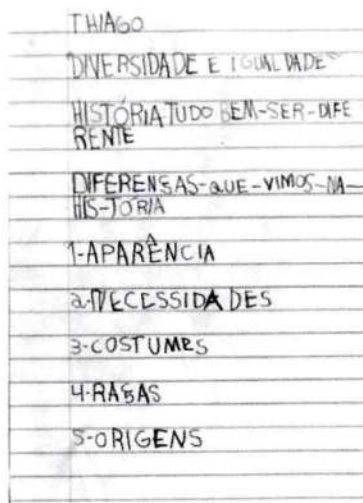 THIAGO
DIVERSIDADE E IGUALDADE
HISTÓRIA TUDO BEM-SER-DIFE
RENTE
DIFERENSAS-QUE-VIMOS-NA-
HIS-TORIA
1-APARÊNCIA
2-NECESSIDADES
3-COSTUMES
4-RASAS
5-ORIGENS